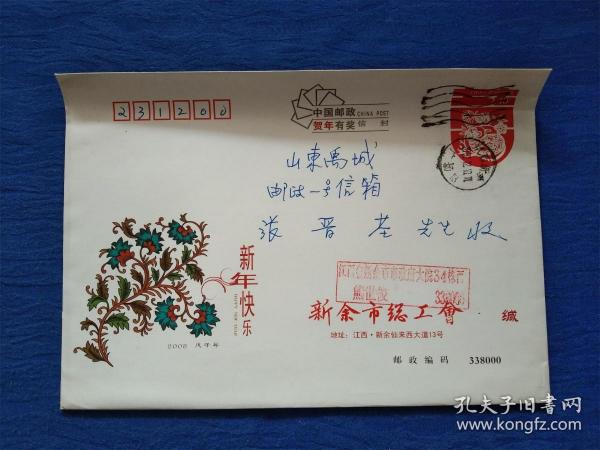 231200
中国邮政 CHINA POST
贺年有奖 信 封
山东禹城
邮政一号信箱
张晋荃 先生 收
新年快乐
HAPPY NEW YEAR
2008 戊子年
34栋
熊世骏
新余市总工會 缄
地址：江西·新余仙来西大道13号
邮政编码 338000
孔夫子旧书网
www.kongfz.com